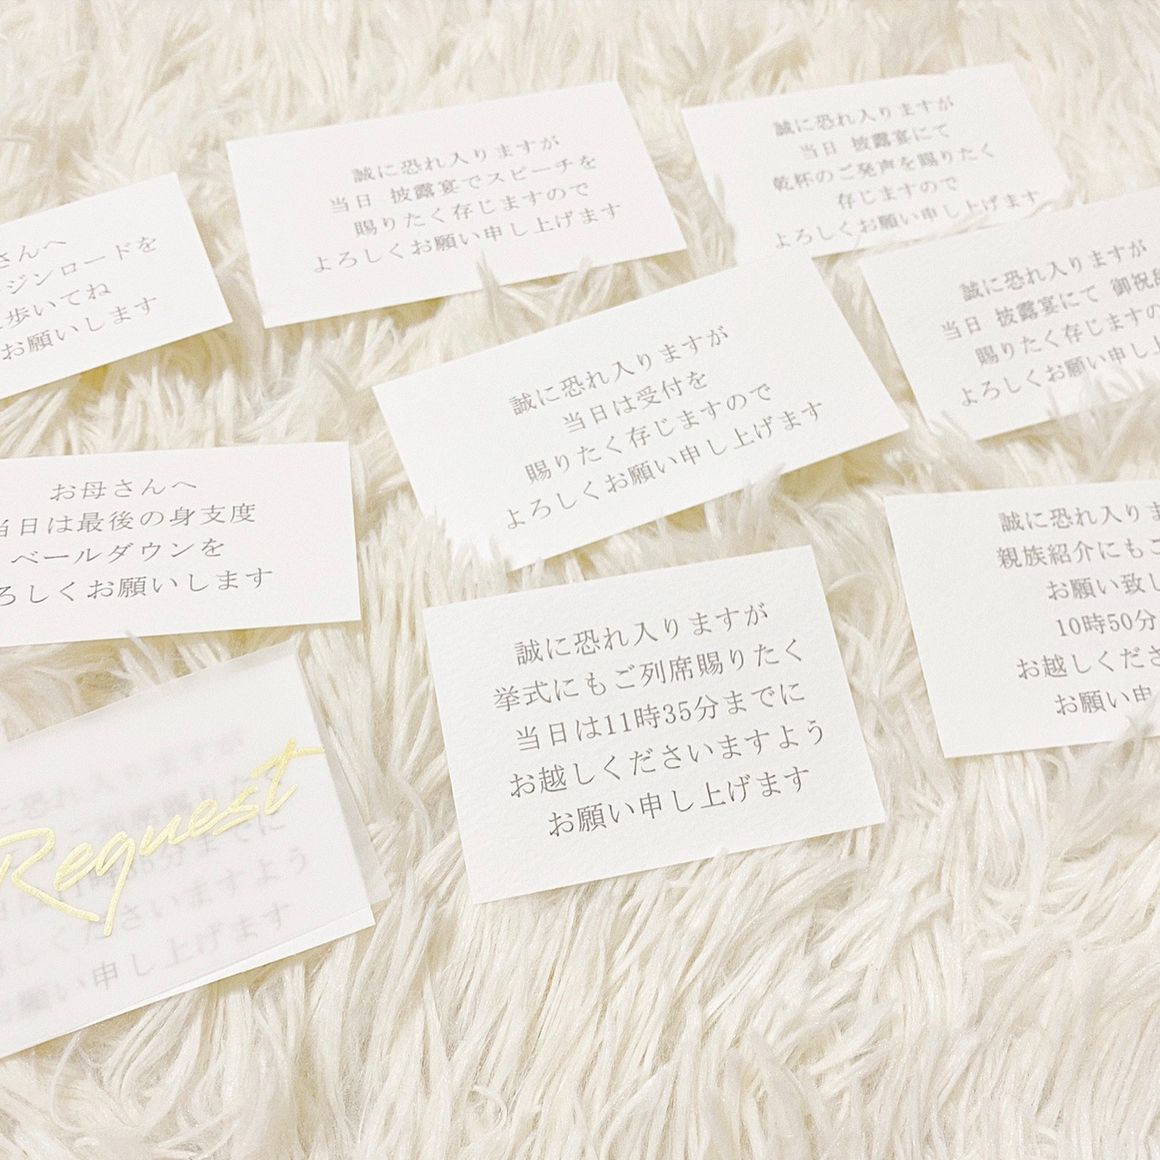 誠に恐れ入りますが
当日 披露宴でスピーチを
賜りたく存じますので
よろしくお願い申し上げます
誠に恐れ入りますが
当日 披露宴にて
乾杯のご発声を賜りたく
存じますので
よろしくお願い申し上げます
さんへ
ジンロードを
歩いてね
お願いします
誠に恐れ入りますが
当日は受付を
賜りたく存じますので
よろしくお願い申し上げます
誠に恐れ入りますが
当日 披露宴にて 御祝
賜りたく存じますの
よろしくお願い申し上
お母さんへ
当日は最後の身支度
ベールダウンを
ろしくお願いします
誠に恐れ入りますが
挙式にもご列席賜りたく
当日は11時35分までに
お越しくださいますよう
お願い申し上げます
誠に恐れ入りま
親族紹介にもご
お願い致し
10時50分
お越しくださ
お願い申
Request
ますが
列席賜りた
時35分までに
しくださいますよう
願い申し上げます